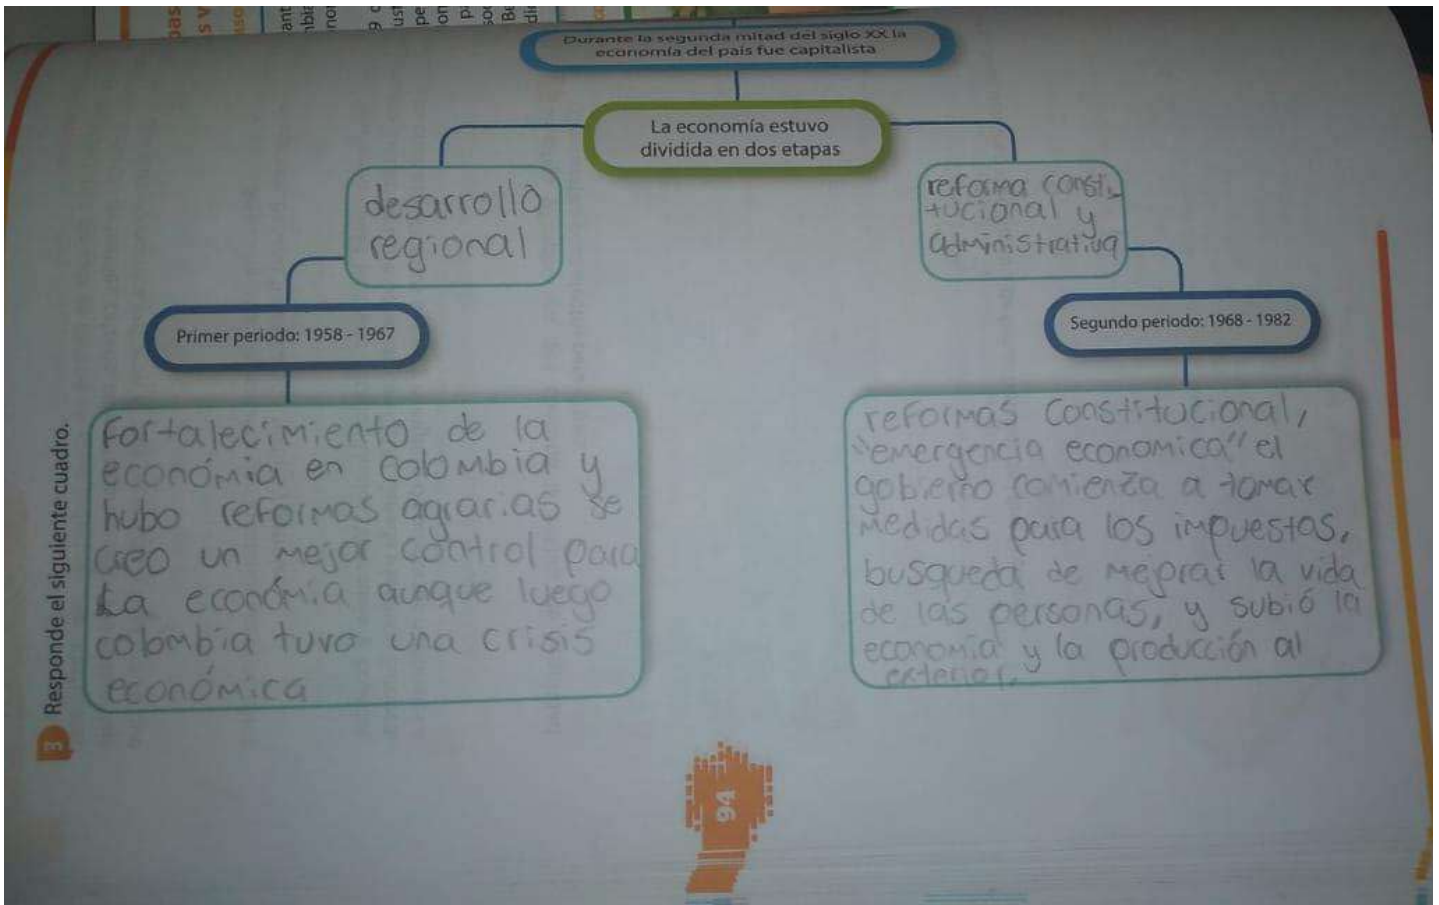 Durante la segunda mitad del siglo XX la
economía del país fue capitalista
La economía estuvo
dividida en dos etapas
desarrollo
regional
reforma consti-
tucional y
administrativa
Primer periodo: 1958 - 1967
Segundo periodo: 1968 - 1982
3 Responde el siguiente cuadro.
fortalecimiento de la
económia en colombia y
hubo reformas agrarias se
creo un mejor control para
La económia aunque luego
colombia tuvo una crisis
económica
reformas constitucional,
"emergencia economica" el
gobierno comienza a tomar
medidas para los impuestos,
busqueda de mejorar la vida
de las personas, y subió la
economia y la producción al
exterior.
94